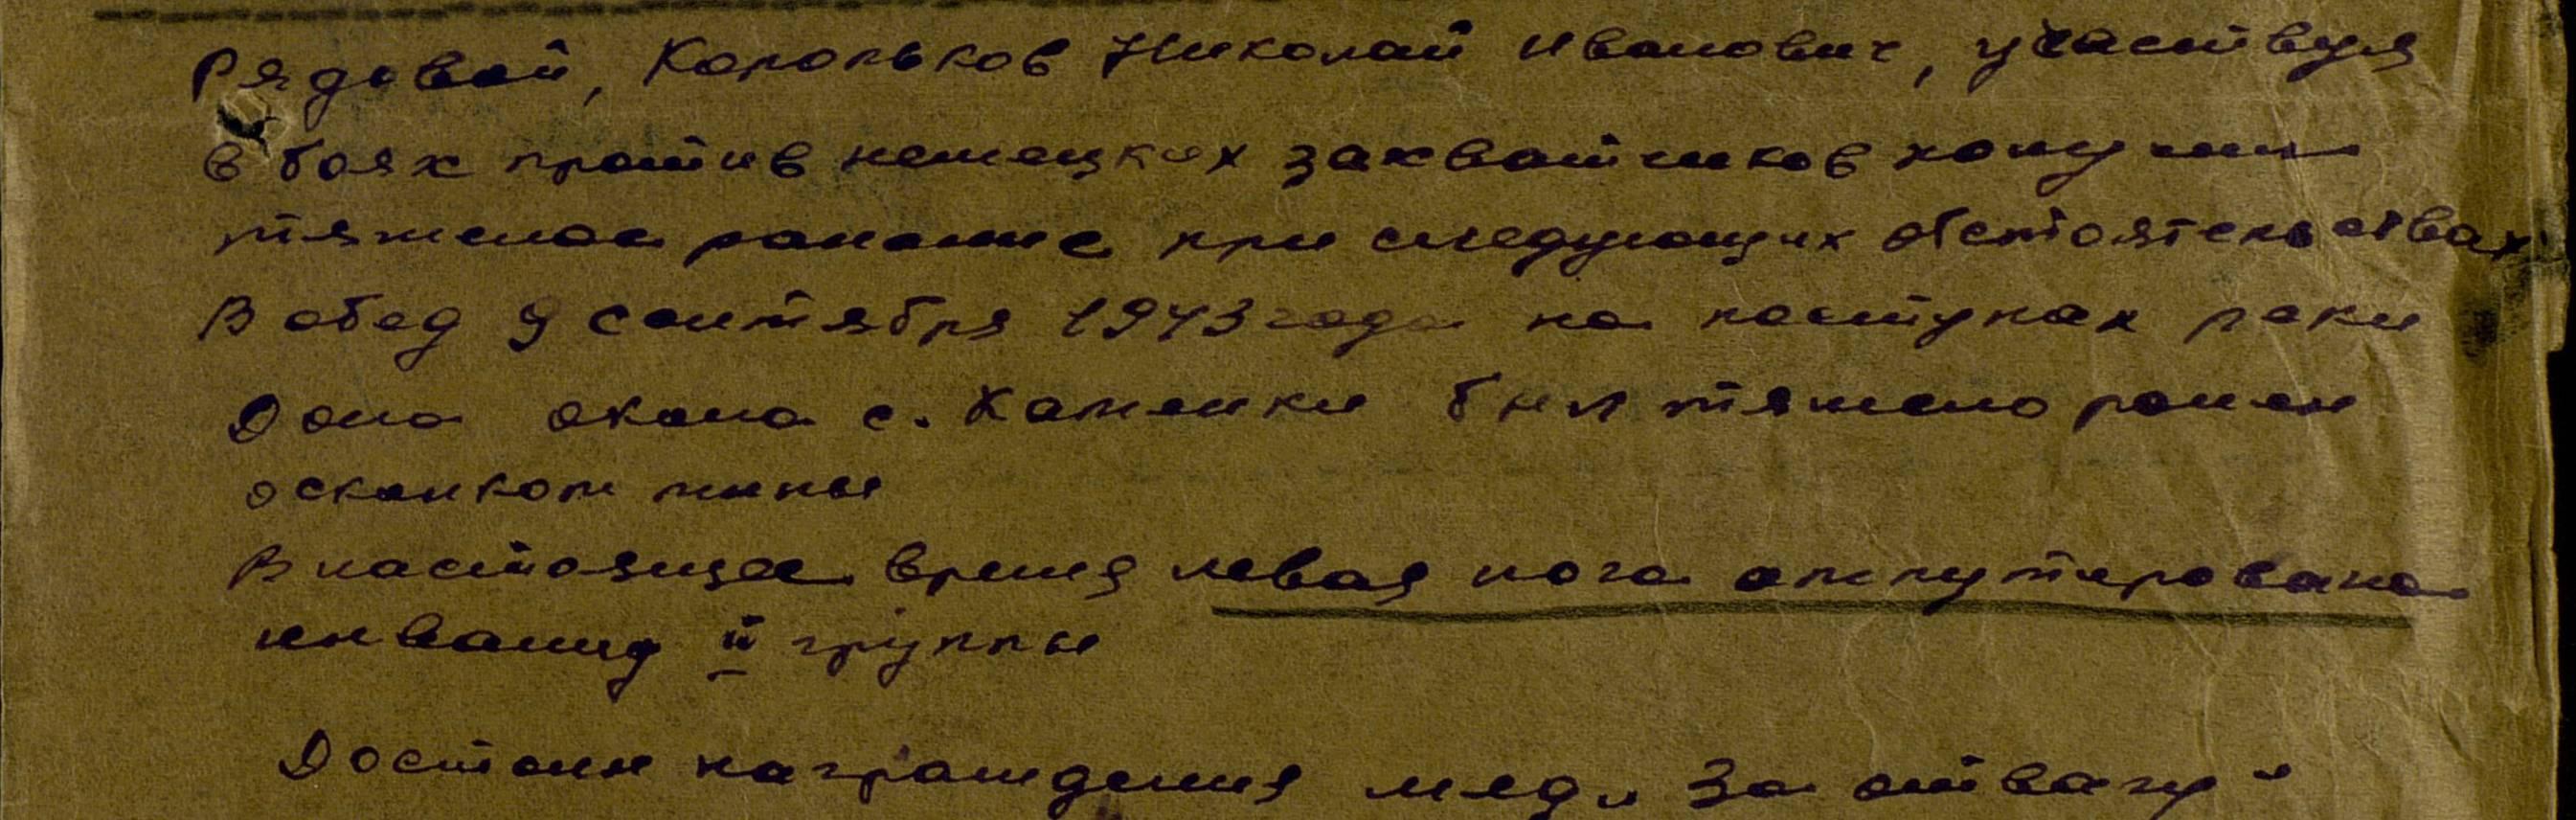 Рядовой, Корольков Николай Иванович, участвуя
в боях против немецких захватчиков получил
тяжелое ранение при следующих обстоятельствах
В обед 9 сентября 1943 года на поступах реки
Дона около с. Каменки был тяжело ранен
осколком мины
В настоящее время левая нога ампутирована
инвалид II группы
Достоин награждения мед. "За отвагу"